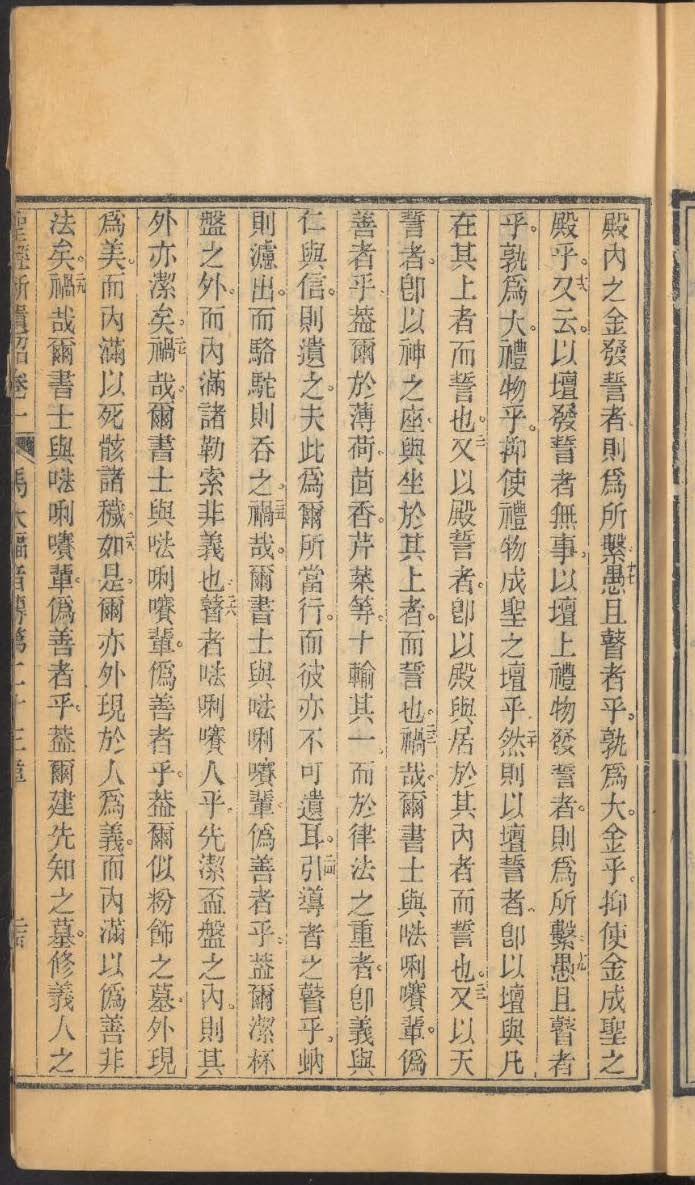 殿內之金發誓者則爲所繫十七愚且瞽者乎。孰爲大。金乎。抑使金成聖之
殿乎。十八又云。以壇發誓者無事。以壇上禮物發誓者。則爲所繫。十九愚且瞽者
乎。孰爲大。禮物乎。抑使禮物成聖之壇乎。二十然則以壇誓者。卽以壇與凡
在其上者而誓也。二一又以殿誓者。卽以殿與居於其內者而誓也。二二又以天
誓者。卽以神之座。與坐於其上者。而誓也。二三禍哉。爾書士與㕸唎㘔輩。僞
善者乎。葢爾於薄荷。茴香。芹菜等。十輸其一。而於律法之重者。卽義與
仁與信。則遺之。夫此爲爾所當行。而彼亦不可遺耳。二四引導者之瞽乎。蚋
則濾出。而駱駝則吞之。二五禍哉。爾書士與㕸唎㘔輩。僞善者乎。葢爾潔杯
盤之外。而內滿諸勒索非義也。二六瞽者㕸唎㘔人乎。先潔盃盤之內。則其
外亦潔矣。二七禍哉。爾書士與㕸唎㘔輩。僞善者乎。葢爾似粉飾之墓。外現
爲美。而內滿以死骸諸穢。二八如是。爾亦外現於人爲義。而內滿以僞善非
法矣。二九禍哉爾書士與㕸唎㘔輩。僞善者乎。葢爾建先知之墓。修義人之
聖經新遺詔卷一 馬太福音傳第二十三章